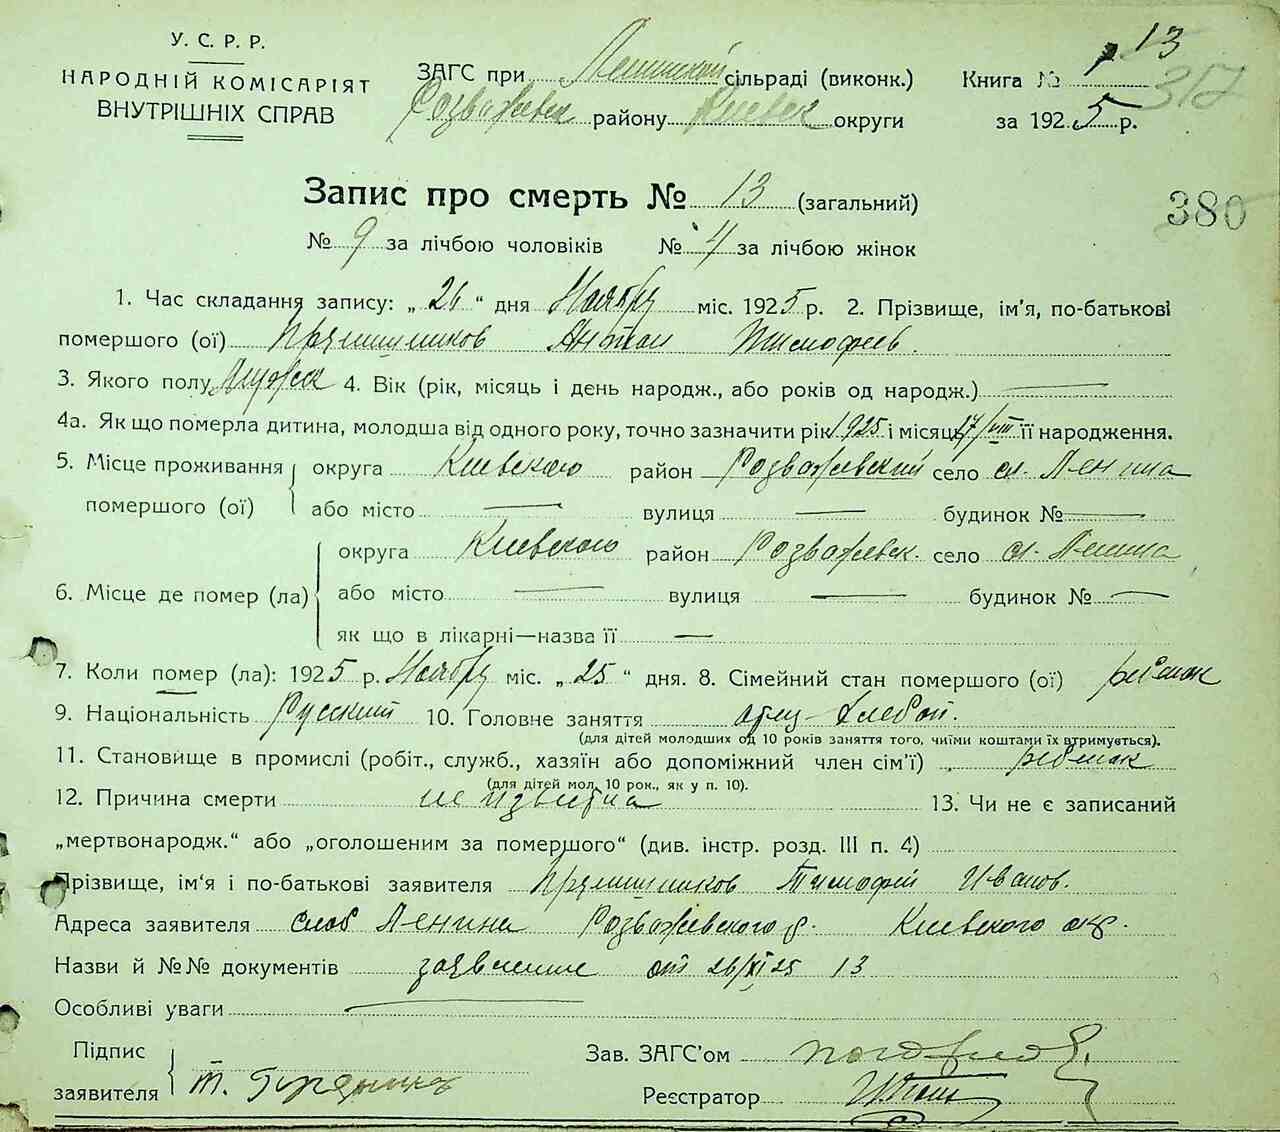 У. С. Р. Р.
НАРОДНІЙ КОМІСАРІЯТ
ВНУТРІШНІХ СПРАВ
ЗАГС при Ленинской сільраді (виконк.)
Розважевск району Киевск округи
Книга № 1 13
317
за 1925 р.
Запис про смерть № 13 (загальний)
380
№ 9 за лічбою чоловіків № 4 за лічбою жінок
1. Час складання запису: „ 26 “ дня Ноябру міс. 1925 р. 2. Прізвище, ім'я, по-батькові
помершого (ої) Прямишников Антон Тимофеев.
3. Якого полу Мужск 4. Вік (рік, місяць і день народж., або років од народж.)
4а. Як що померла дитина, молодша від одного року, точно зазначити рік 1925 і місяць 17/VIII її народження.
5. Місце проживання помершого (ої) округа Киевского район Розважевский село сл. Ленина
або місто вулиця будинок №
6. Місце де помер (ла) округа Киевского район Розважевск. село сл. Ленина
або місто вулиця будинок №
як що в лікарні—назва її
7. Коли помер (ла): 1925 р. Ноябру міс. „ 25 “ дня. 8. Сімейний стан помершого (ої) ребенок
9. Національність Русский 10. Головне заняття отец - хлебоп.
(для дітей молодших од 10 років заняття того, чиїми коштами їх втримується).
11. Становище в промислі (робіт., служб., хазяїн або допоміжний член сім'ї) ребенок
(для дітей мол. 10 рок., як у п. 10).
12. Причина смерти не извесна 13. Чи не є записаний
„мертвонародж.“ або „оголошеним за помершого“ (див. інстр. розд. III п. 4)
Прізвище, ім'я і по-батькові заявителя Прямишников Тимофей Иванов.
Адреса заявителя слоб Ленина Розважевского р. Киевского окр.
Назви й №№ документів заявление от 26/XI 25 13
Особливі уваги
Підпис заявителя Т.
Зав. ЗАГС'ом
Реєстратор